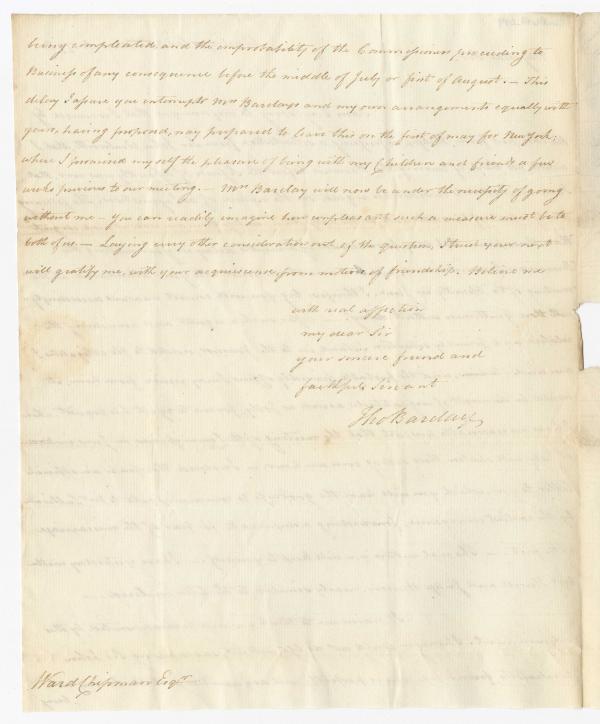 being compleated, and the improbability of the Commissioners proceeding to
Business of any consequence before the middle of July or first of August. — This
delay I assure you interrupts Mrs Barclays and my own arrangements equally with
yours, having proposed, nay prepared to leave this on the first of may for New York;
where I promised myself the pleasure of being with my Children and friends a few
weeks previous to our meeting. — Mrs Barclay will now be under the necessity of going
without me — you can readily imagine how unpleasant such a measure must be to
both of us. — Laying every other consideration out of the question, I trust your next
will gratify me, with your acquiescence, from motives of friendship. Believe me
with real affection
my dear Sir
your sincere friend and
faithful Servant
Tho Barclay
Ward Chipman Esqr